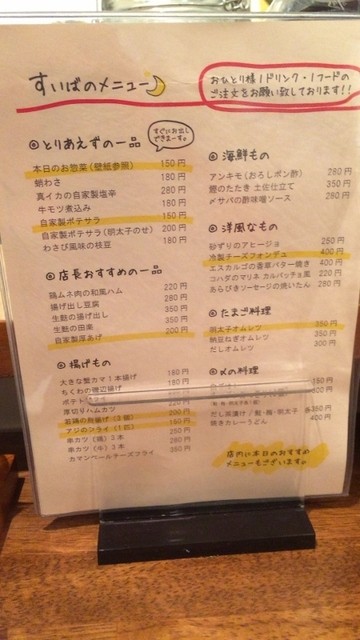 すいばのメニュー
おひとり様1ドリンク・1フードの
ご注文をお願い致しております!!
◎とりあえずの一品
すぐにお出しできまーす。
本日のお惣菜(壁紙参照) 150円
蛸わさ 180円
真イカの自家製塩辛 280円
牛モツ煮込み 180円
自家製ポテサラ 150円
自家製ポテサラ(明太子のせ) 200円
わさび風味の枝豆 180円
◎店長おすすめの一品
鶏ムネ肉の和風ハム 220円
揚げ出し豆腐 280円
生麩の揚げ出し 350円
生麩の田楽
自家製厚あげ 200円
◎揚げもの
大きな蟹カマ1本揚げ 180円
ちくわの磯辺揚げ
厚切りハムカツ
アジのフライ(1匹) 150円
串カツ(鶏)2本
串カツ(牛)2本
カマンベールチーズフライ 350円
◎海鮮もの
アンキモ(おろしポン酢) 280円
鰹のたたき 土佐仕立て 350円
〆サバの酢味噌ソース 280円
◎洋風なもの
砂ずりのアヒージョ 250円
冷製チーズフォンデュ 400円
エスカルゴの香草バター焼き 400円
コハダのマリネ カルパッチョ風 220円
あらびきソーセージの焼いたん 280円
◎たまご料理
明太子オムレツ 350円
納豆ねぎオムレツ 300円
だしオムレツ 300円
◎〆の料理
焼きカレーうどん 400円
店内に本日のおすすめ
メニューもございます。